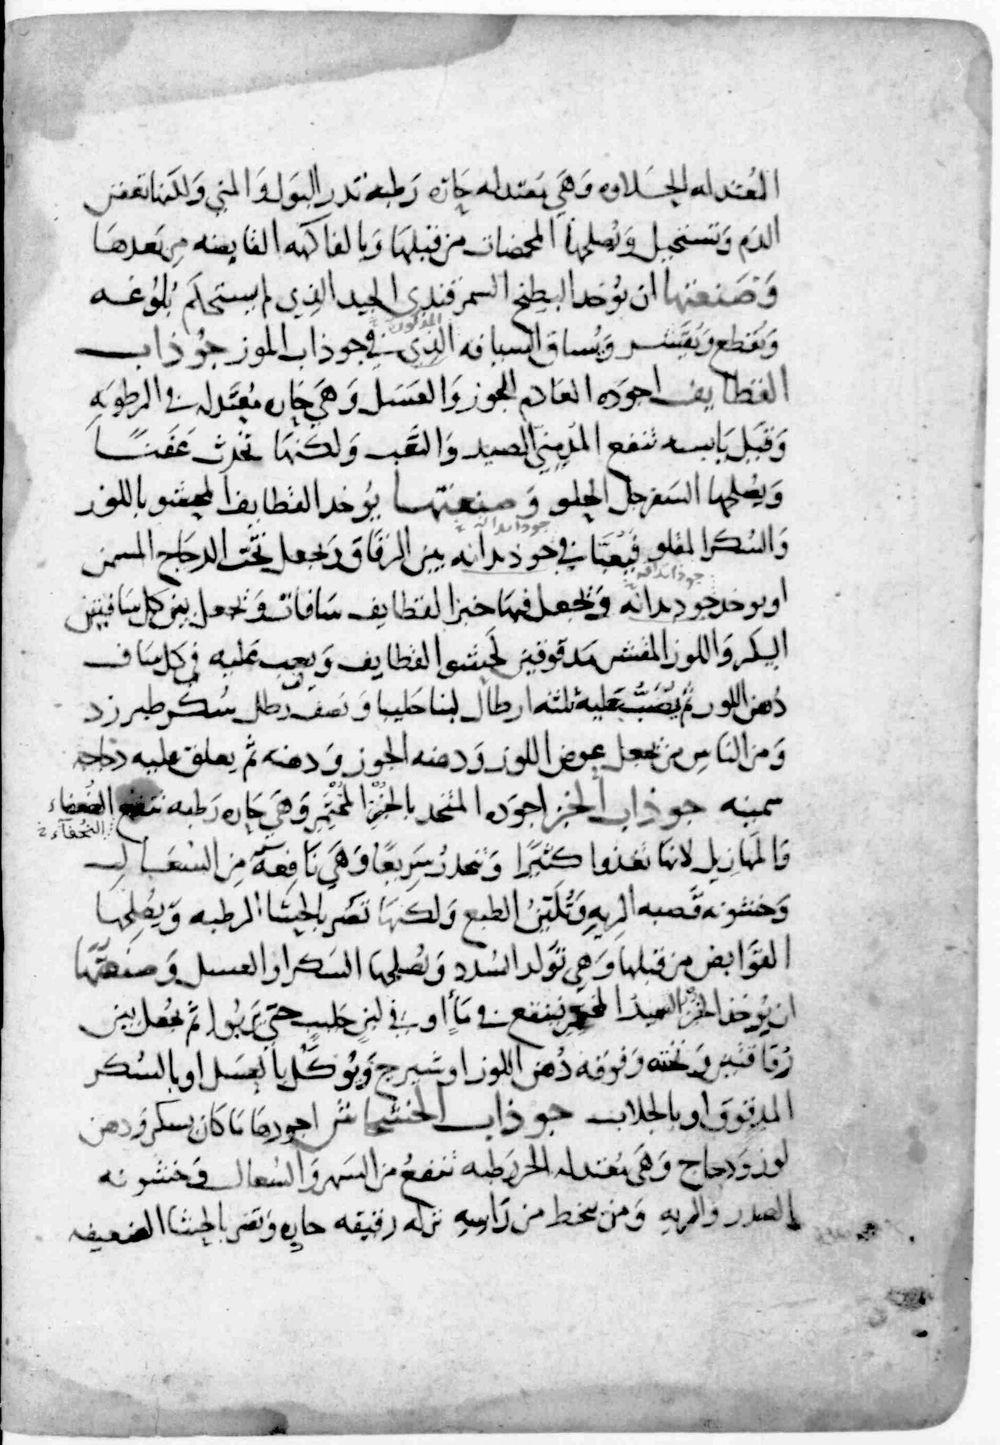 المعتدله الحلاوه وَهَي معتدله حَاره رَطبه تدر البَول وَالمني وَلكنها تعفن
الدم وَتستحيل وَيُصلحها المحمضات من قبلهَا وَبالفاكهه القابضه مِن بَعدهَا
وَصَنعتها ان يُوخذ البطيخ السمرقندي الجيد الذِي لم يستحكم بُلوُغه
وَيُقطع وَيُقشر وَيُساق السياقه الذي في جوذاب الموز جُوذاب
المذكور
القطايف اجوَده العَادم الجوز وَالعَسَل وَهَي حَاره مُعتَدله في الرطوبَهِ
وَقيَل يَابسه تنفع المدمني الصيد وَالتعَب وَلكنهَا تحدث عَفَنًا
وَيُصلحهَا السَفرجل الحلو وَصنعتها يوُخد القطايف المحشو باللوز
وَالسُكر المقلو فيُعَبَّا في جوذبدانه بين الرقَاق وَيجعل تحت الدجَاج المسمن
جوذابدانه
او يوخد جوذبدانه وَيجعل فيهَا خبز القطايف سَافات وَيجعل بين كل سَافيَن
جوذابدانه
السكر وَاللوز المقشر مَدقوقين لحَشو القطايف وَيصب عَليه في كل سَاف
دُهن اللوز ثم يُصَبُّ عَليهِ ثلثه ارطال لبنا حَليبا وَنصف رطل سُكر طبرزد
وَمن الناسِ من يجعل عوض اللوز وَدهنه الجوز وَدهنه ثم يعلق عليه دجاجه
سمينه جوذاب الخبز اجوَده المتخد بالخُبز المختمر وَهَي حَاره رَطبه تنفع الضُعفاء
النُحفآء
وَالمهَازيل لانهَا تغذوا كثيرًا وَتنحدر سَريعًا وَهَي نَافِعَه مِن السُعَال
وَخشونه قَصبه الرِيه وَتُليّنُ الطبع وَلكنهَا تضر بالحشا الرطبه وَيُصلحهَا
القوَابض من قبلها وَهَي تُولد السُدد وَيُصلحهَا السَكر او العسل وَصنعتَها
ان يُوخذ الخبز السَميذ المختمر فينقع في مَاءٍ او في لبَن حَليبٍ حتي يَربُوا ثم يجعل بين
رُقاقتين من تحَته وَفوقه دُهن اللوز او شيرج وَيُوكلُ بالعَسَل او بالسُكر
المدقوق او بالجلاب جوذاب الخشخاش اجودهَا مَا كان بسكر وَدهن
لوز وَدجاج وَهَي مُعتدله الحر رَطبه تنفعُ من السَهر وَالسُعال وَخشونه
الصدر وَالريه وَمن ينحط من رَاسِهِ نزله رقيقه حَاره وَتضر بالحشا الضعيفه